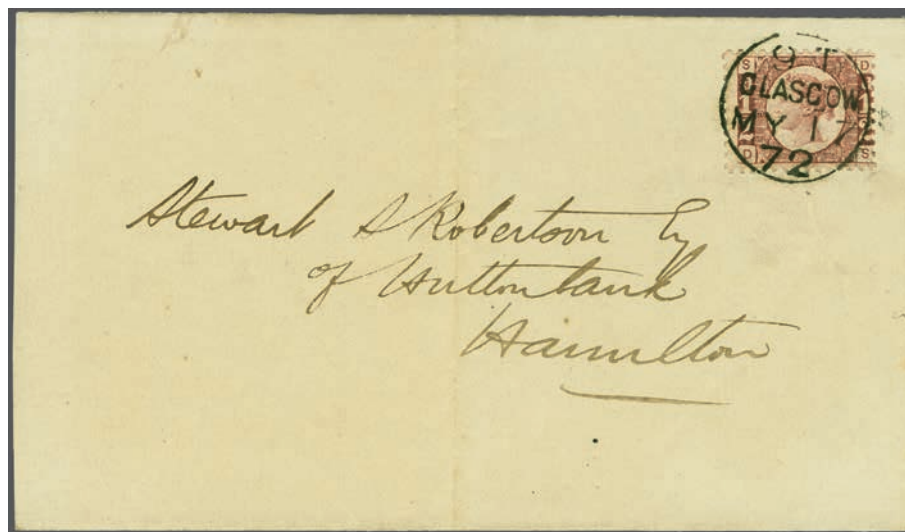 S D
9 T
GLASGOW
MY 17
72
1/2 1/2
D S
Stewart S Robertson Esq
of Huttonbank
Hamilton